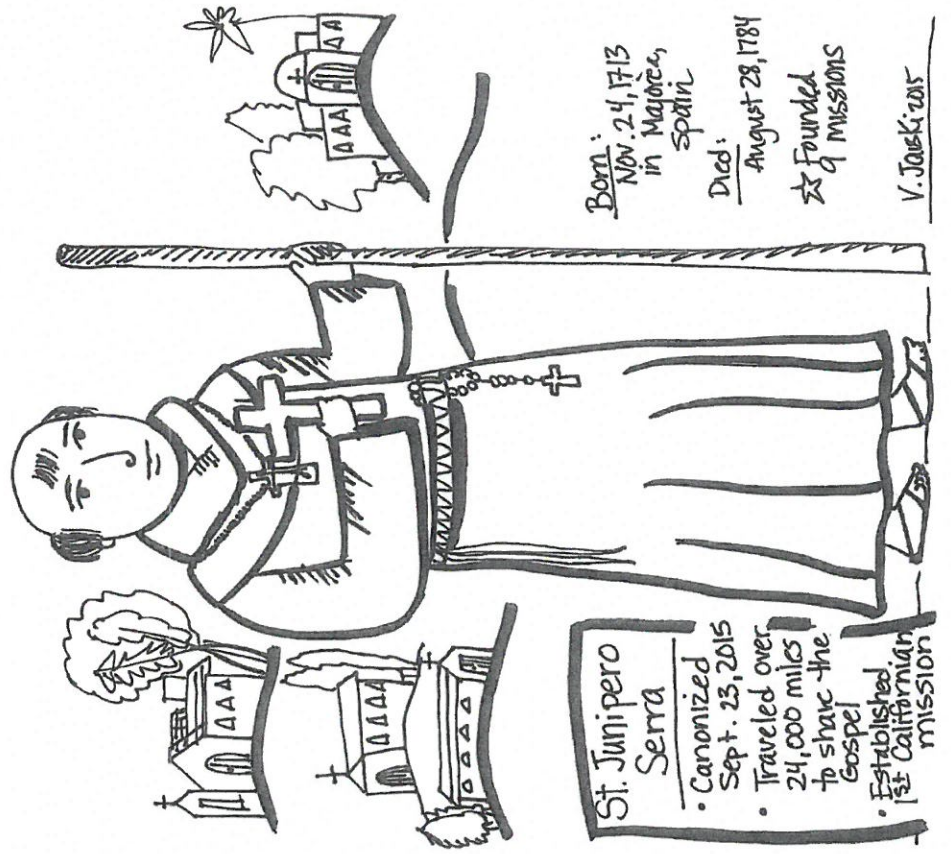 St. Junipero
Serra
• Canonized
Sept. 23, 2015
• Traveled over
24,000 miles
to share the
Gospel
• Established
1st Californian
mission
Born:
Nov. 24, 1713
in Majorca,
Spain
Died:
August 28, 1784
☆ Founded
9 missions
V. 2015